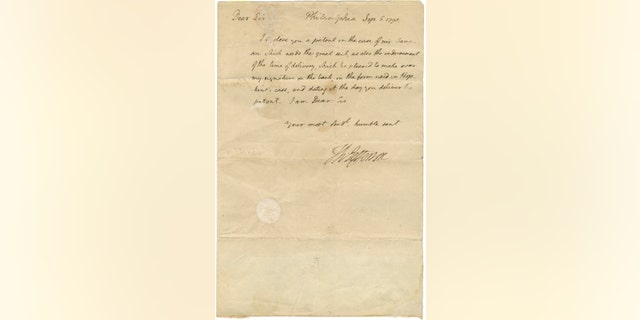 Dear Sir Philadelphia Sep. 5. 1790.
I inclose you a patent in the case of mr Sam
on which needs the great seal, as also the indorsement
of the time of delivery, which be pleased to make over
my signature on the back, in the form used in Hop-
kins's case, and dating it the day you deliver the
patent. I am Dear Sir
Your most obedt. humble servt
Th: Jefferson